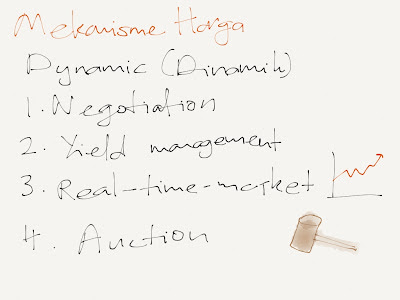 Mekanisme Harga
Dynamic (Dinamik)
1. Negotiation
2. Yield management
3. Real-time-market
4. Auction